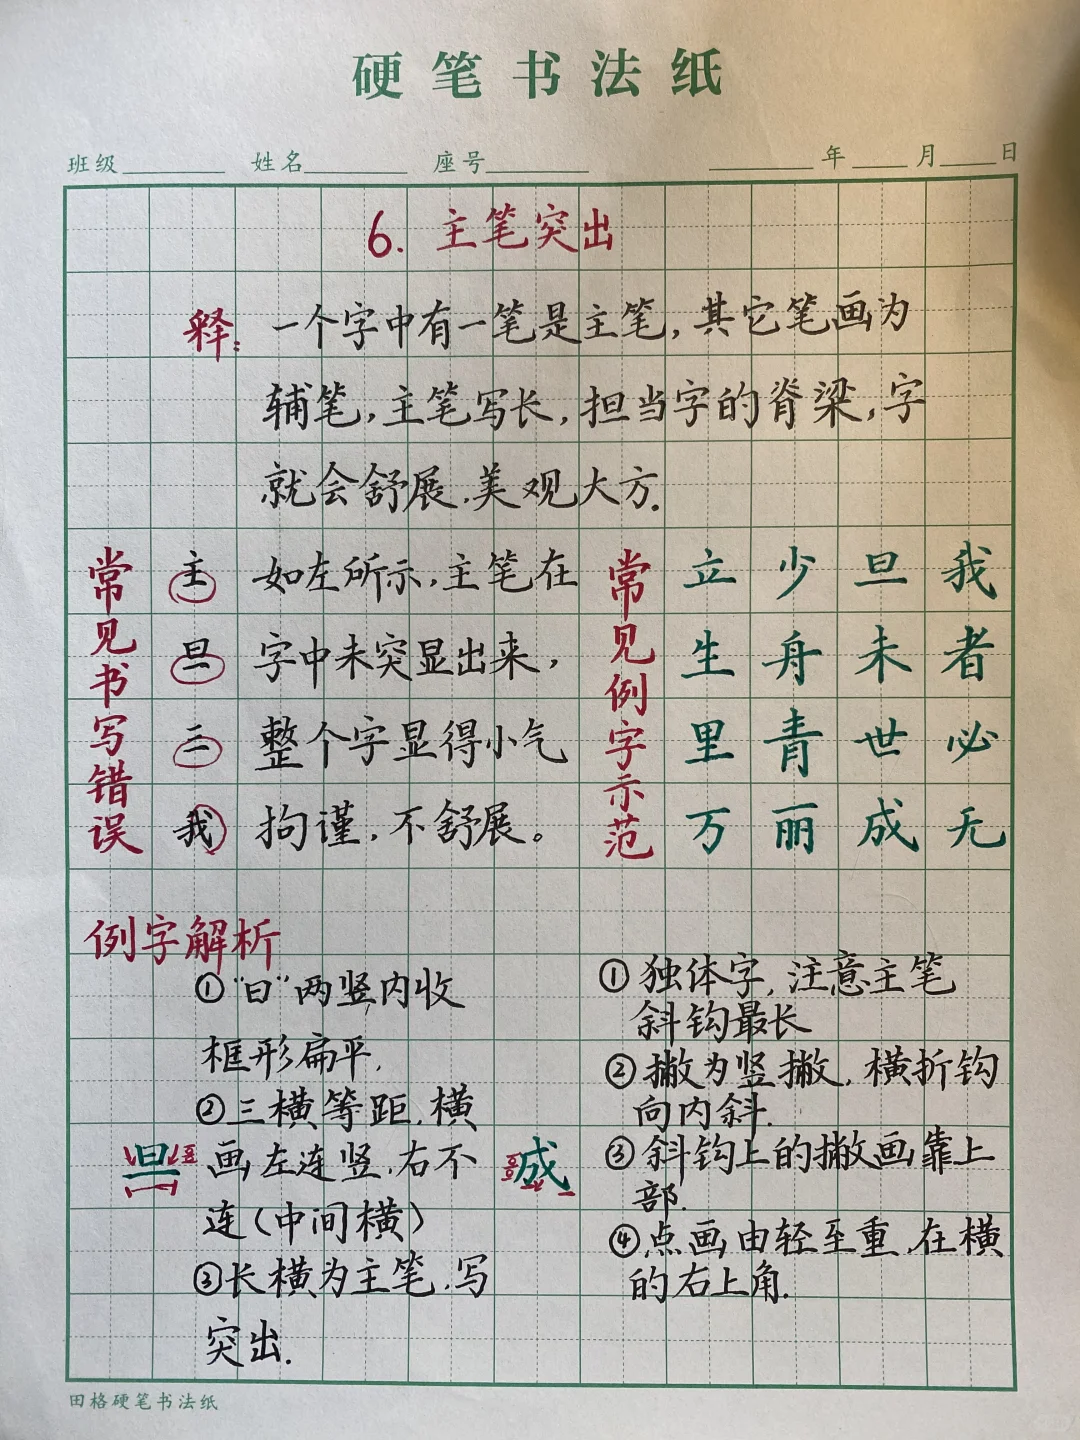 硬笔书法纸
班级 姓名 座号 年 月 日
6. 主笔突出
释: 一个字中有一笔是主笔,其它笔画为
辅笔,主笔写长,担当字的脊梁,字
就会舒展,美观大方.
常见书写错误
主 如左所示,主笔在
旦 字中未突显出来,
三 整个字显得小气
我 拘谨,不舒展。
常见例字示范
立 少 旦 我
生 舟 未 者
里 青 世 必
万 丽 成 无
例字解析
旦
①“日”两竖内收
框形扁平,
②三横等距,横
画左连竖,右不
连(中间横)
③长横为主笔,写
突出.
成
①独体字,注意主笔
斜钩最长
②撇为竖撇,横折钩
向内斜.
③斜钩上的撇画靠上
部.
④点画由轻至重,在横
的右上角.
田格硬笔书法纸